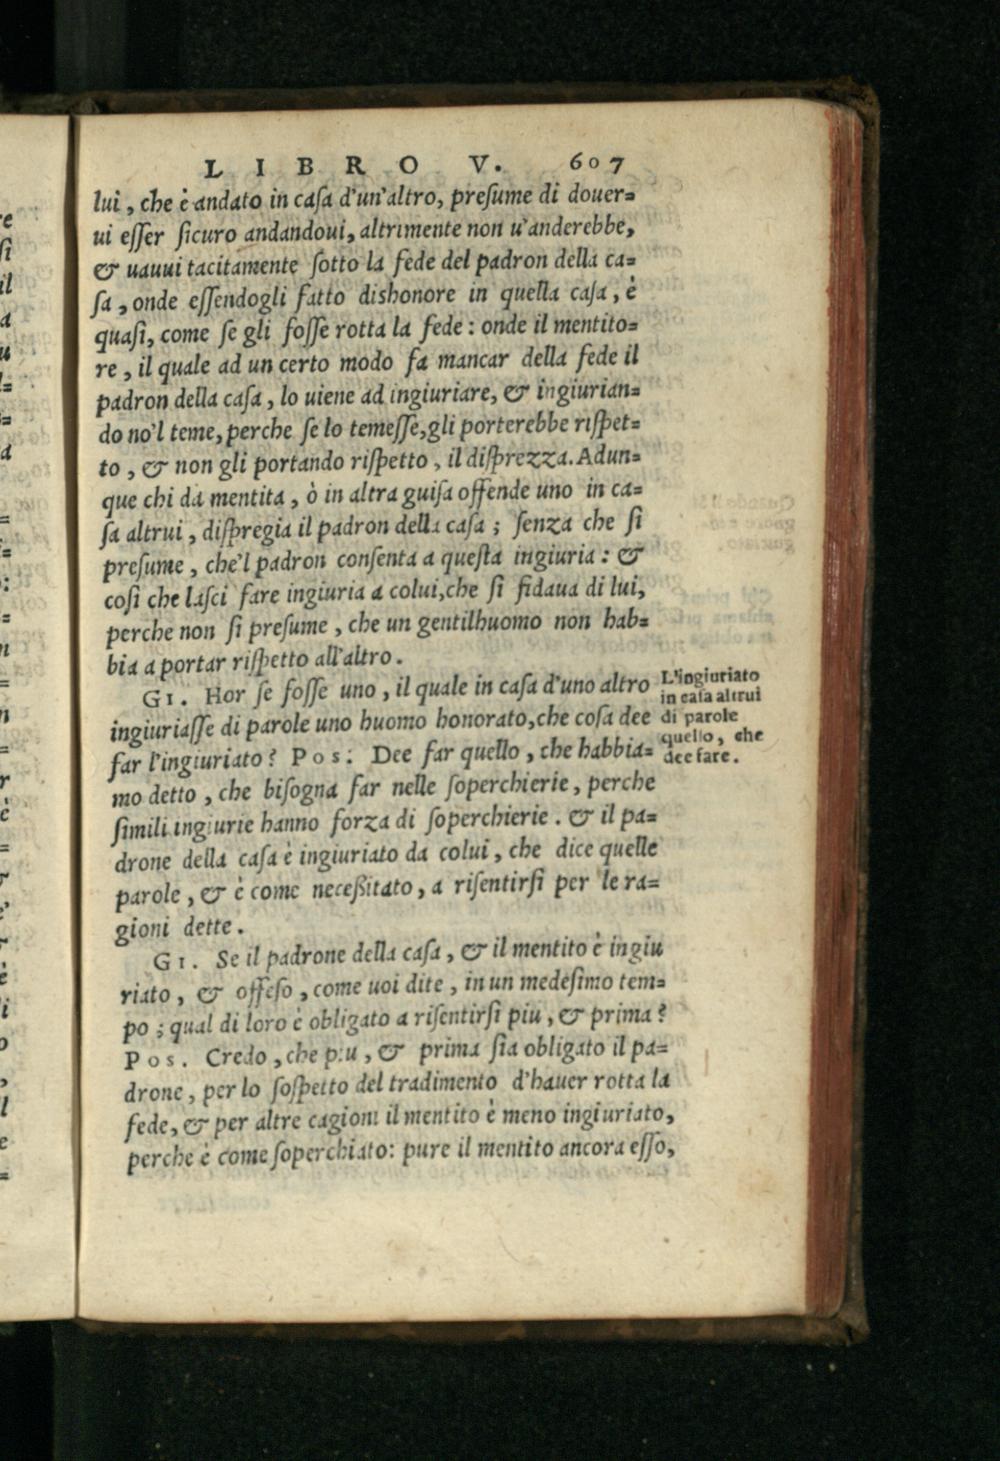 LIBRO V. 607
lui, che è andato in caſa d'un'altro, preſume di douer=
ui eſſer ſicuro andandoui, altrimente non u'anderebbe,
& uauui tacitamente ſotto la fede del padron della ca=
ſa, onde eſſendogli fatto dishonore in quella caſa, è
quaſi, come ſe gli foſſe rotta la fede: onde il mentito=
re, il quale ad un certo modo fa mancar della fede il
padron della caſa, lo uiene ad ingiuriare, & ingiurian=
do no'l teme, perche ſe lo temeſſe, gli porterebbe riſpet=
to, & non gli portando riſpetto, il diſprezza. Adun=
que chi dà mentita, ò in altra guiſa offende uno in ca=
ſa altrui, diſpregia il padron della caſa; ſenza che ſi
preſume, che'l padron conſenta a queſta ingiuria: &
coſi che laſci fare ingiuria a colui, che ſi fidaua di lui,
perche non ſi preſume, che un gentilhuomo non hab=
bia a portar riſpetto all'altro.
GI. Hor ſe foſſe uno, il quale in caſa d'uno altro
ingiuriaſſe di parole uno huomo honorato, che coſa dee
far l'ingiuriato? Pos. Dee far quello, che habbia=
mo detto, che biſogna far nelle ſoperchierie, perche
ſimili ingiurie hanno forza di ſoperchierie. & il pa=
drone della caſa è ingiuriato da colui, che dice quelle
parole, & è come neceßitato, a riſentirſi per le ra=
gioni dette.
L'ingiuriato
in caſa altrui
di parole
quello, che
dee fare.
GI. Se il padrone della caſa, & il mentito è ingiu
riato, & offeſo, come uoi dite, in un medeſimo tem=
po; qual di loro è obligato a riſentirſi piu, & prima?
Pos. Credo, che piu, & prima ſia obligato il pa=
drone, per lo ſoſpetto del tradimento d'hauer rotta la
fede, & per altre cagioni il mentito è meno ingiuriato,
perche è come ſoperchiato: pure il mentito ancora eſſo,